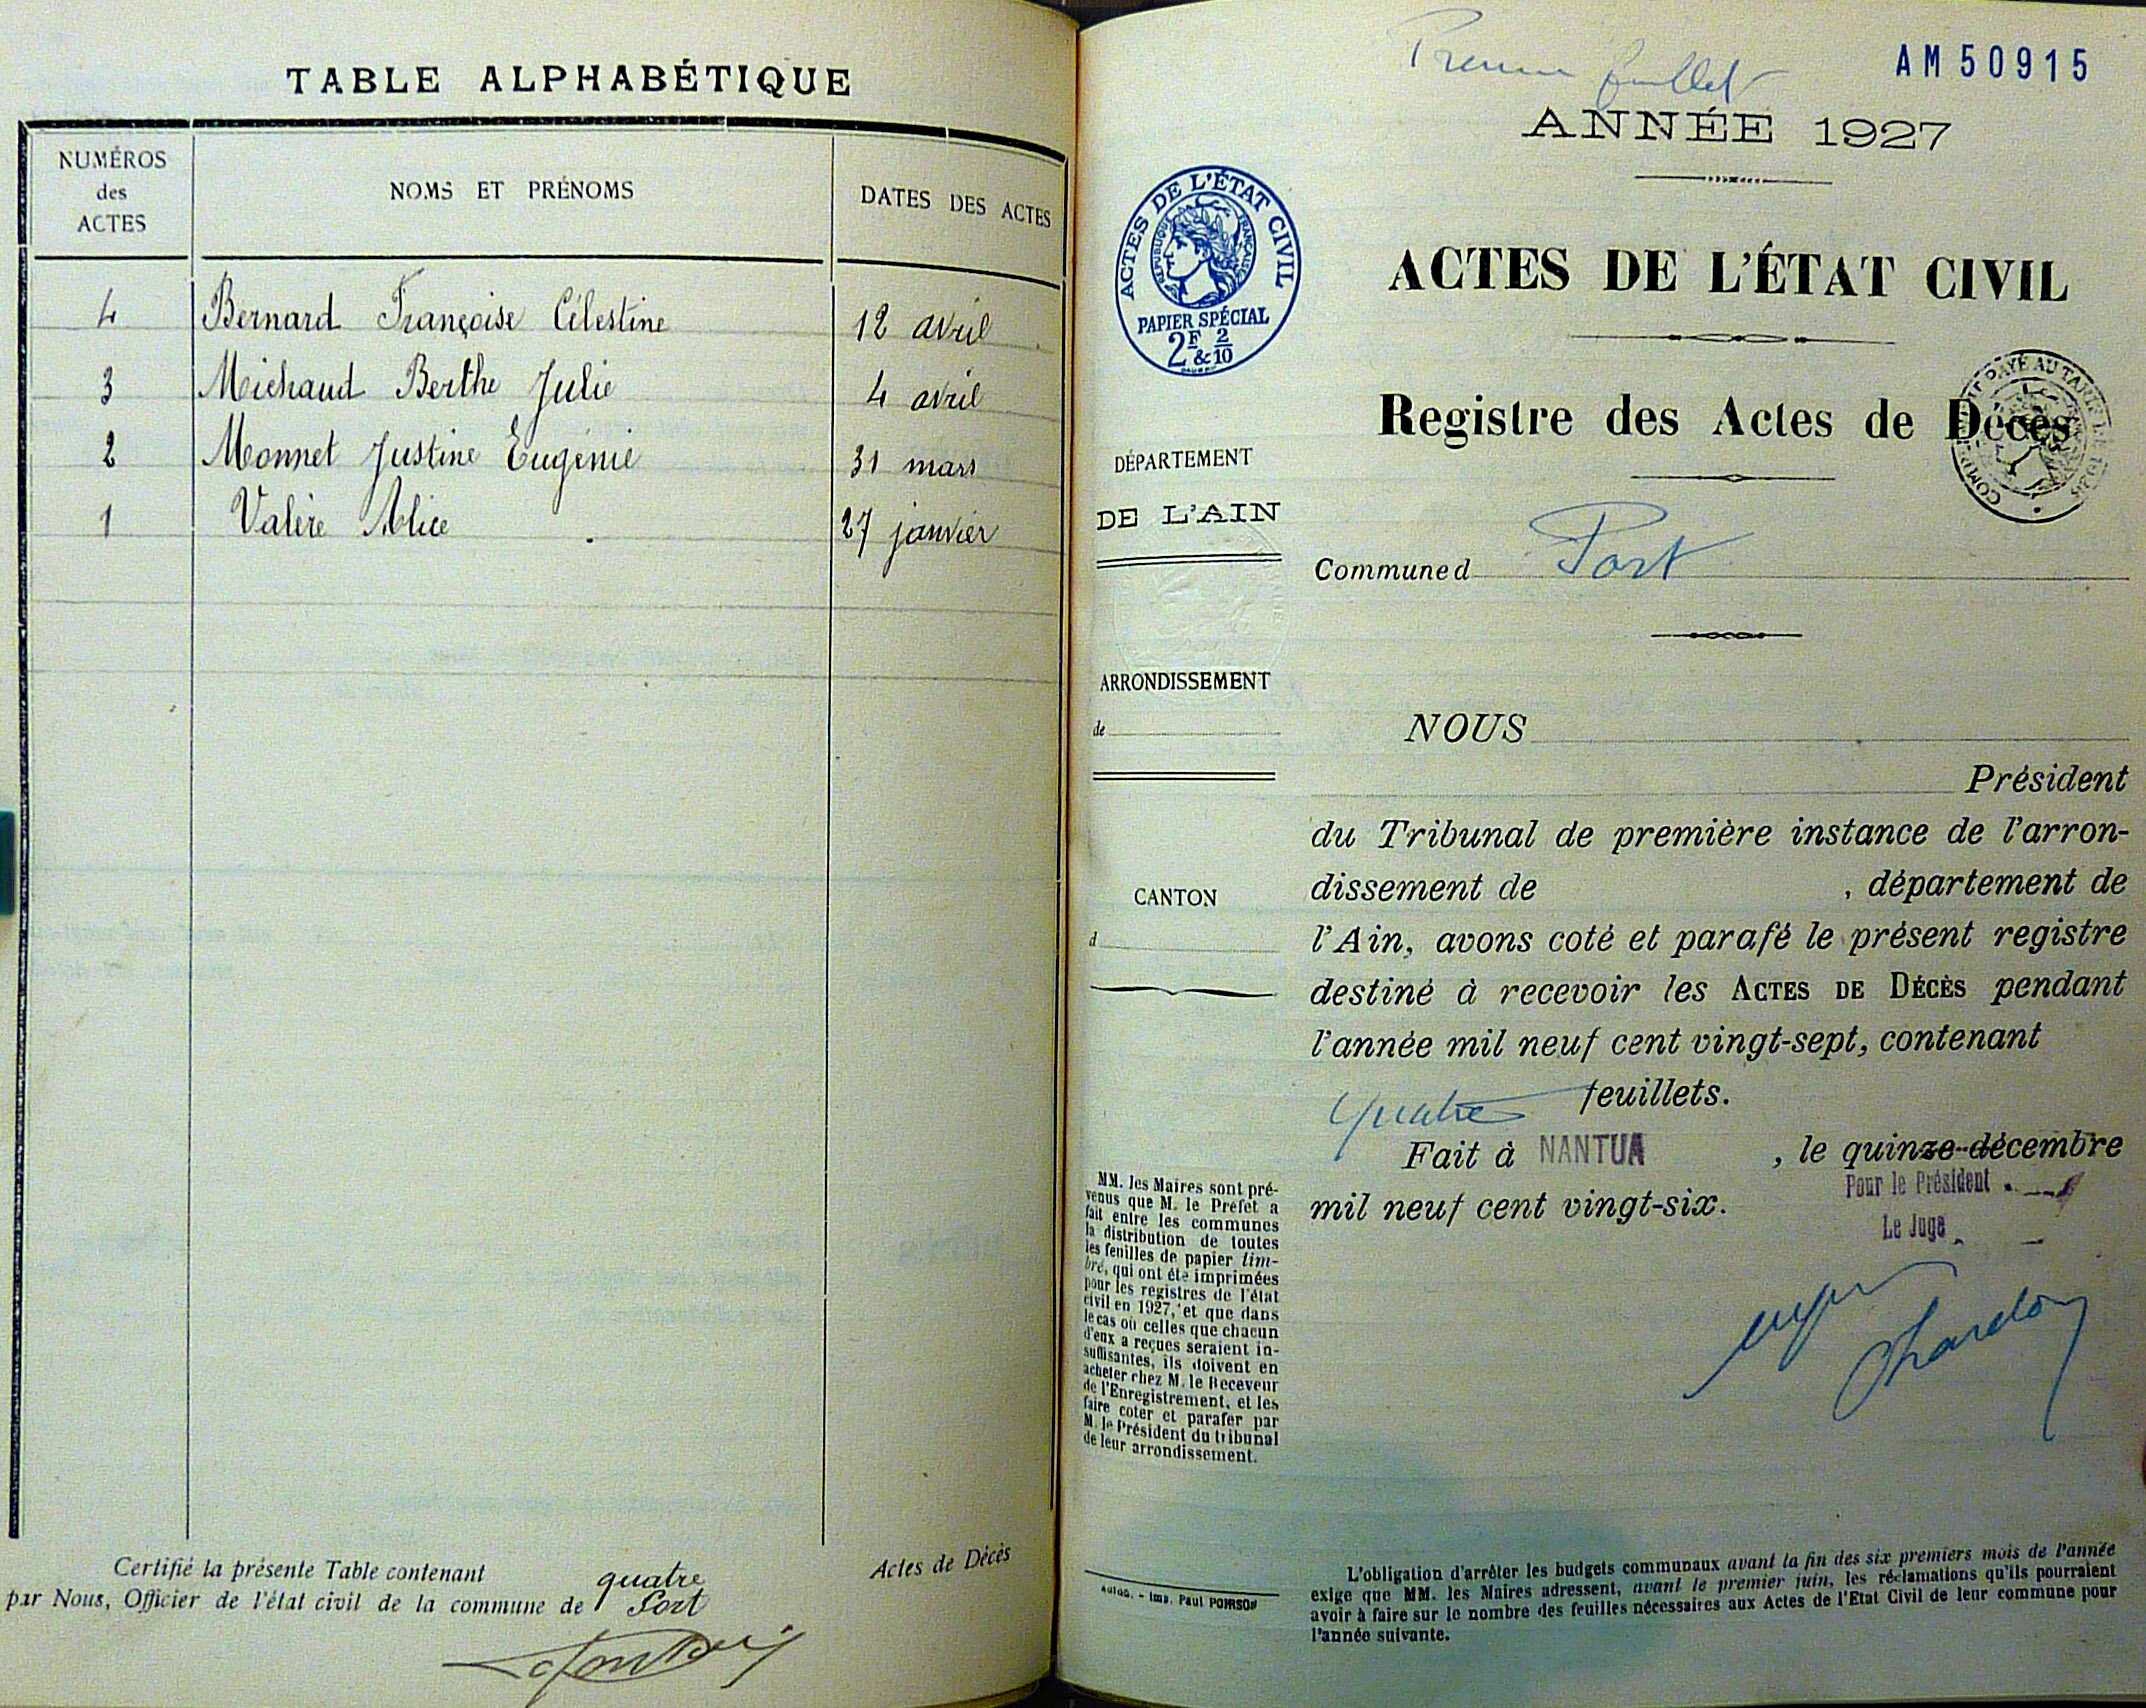 TABLE ALPHABÉTIQUE
NUMÉROS
des
ACTES
NOMS ET PRÉNOMS
DATES DES ACTES
4 Bernard Françoise Célestine 12 avril
3 Michaud Berthe Julie 4 avril
2 Monnet Justine Eugénie 31 mars
1 Valère Alice 27 janvier
Certifié la présente Table contenant quatre Actes de Décès
par Nous, Officier de l'état civil de la commune de Port
Premier feuillet
AM 50915
ANNÉE 1927
ACTES DE L'ÉTAT CIVIL
RÉPUBLIQUE FRANÇAISE
PAPIER SPÉCIAL
2F & 2/10
ACTES DE L'ÉTAT CIVIL
Registre des Actes de Décès
DÉPARTEMENT
DE L'AIN
Commune d Port
ARRONDISSEMENT
de
CANTON
d
NOUS
Président
du Tribunal de première instance de l'arron-
dissement de , département de
l'Ain, avons coté et parafé le présent registre
destiné à recevoir les ACTES DE DÉCÈS pendant
l'année mil neuf cent vingt-sept, contenant
quatre feuillets.
Fait à NANTUA , le quinze décembre
mil neuf cent vingt-six.
Pour le Président
Le Juge
Chardon
MM. les Maires sont pré-
venus que M. le Préfet a
fait entre les communes
la distribution de toutes
les feuilles de papier tim-
bré, qui ont été imprimées
pour les registres de l'état
civil en 1927, et que dans
le cas où celles que chacun
d'eux a reçues seraient in-
suffisantes, ils doivent en
acheter chez M. le Receveur
de l'Enregistrement, et les
faire coter et parafer par
M. le Président du tribunal
de leur arrondissement.
Imp. Paul POIRSON
L'obligation d'arrêter les budgets communaux avant la fin des six premiers mois de l'année
exige que MM. les Maires adressent, avant le premier juin, les réclamations qu'ils pourraient
avoir à faire sur le nombre des feuilles nécessaires aux Actes de l'Etat Civil de leur commune pour
l'année suivante.